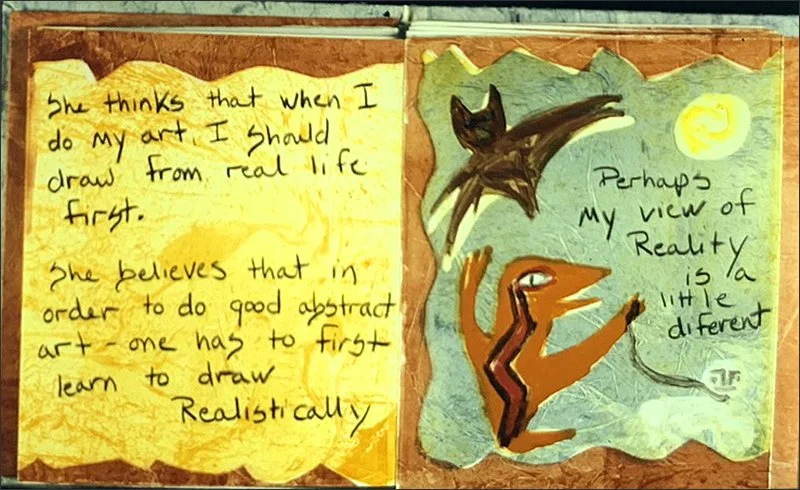 She thinks that when I
do my art, I should
draw from real life
first.
She believes that in
order to do good abstract
art - one has to first
learn to draw
Realistically
Perhaps
My view of
Reality
is a
little
diferent